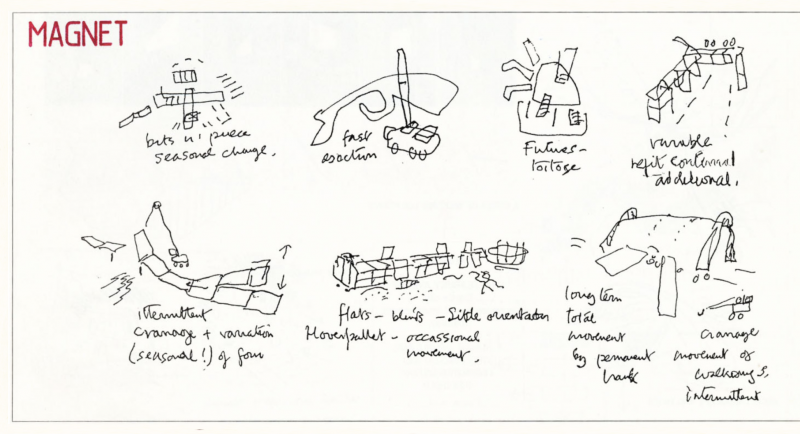 MAGNET
bits n' piece
seasonal change.
fast
erection
Futures-
tortoge
variable
refit continual
additional.
intermittent
cranage + variation
(seasonal!) of form
flats - blinds - Side orientation
Hoverpallet - occassional
movement.
long term
total
movement
by permanent
cranage
movement of
walkways,
intermittent